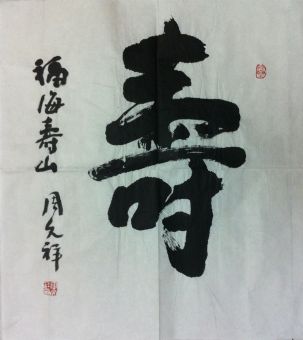 壽
福海寿山 周久祥